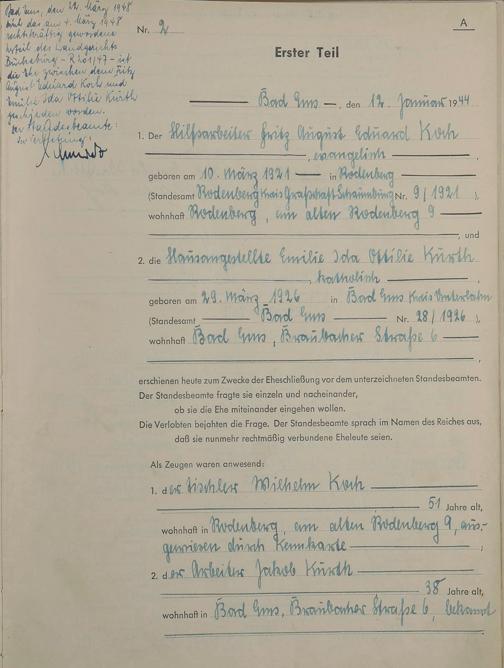 Bad Ems, den 22. März 1948
durch das am 4. März 1948
rechtskräftig gewordene
Urteil des Landgerichts
Bückeburg - R 201/47 - ist
die Ehe zwischen dem Fritz
August Eduard Koch und
Emilie Ida Ottilie Kürth
geschieden worden.
Der Standesbeamte:
In Vertretung:
A
Nr. 2
Erster Teil
Bad Ems, den 12. Januar 1944
1. Der Hilfsarbeiter Fritz August Eduard Koch
, evangelisch,
geboren am 10. März 1921 in Rodenberg
(Standesamt Rodenberg Kreis Grafschaft Schaumburg Nr. 9/1921),
wohnhaft Rodenberg, am alten Rodenberg 9
, und
2. die Hausangestellte Emilie Ida Ottilie Kürth
, katholisch,
geboren am 29. März 1926 in Bad Ems Kreis Unterlahn
(Standesamt Bad Ems Nr. 28/1926),
wohnhaft Bad Ems, Braubacher Straße 6
,
erschienen heute zum Zwecke der Eheschließung vor dem unterzeichneten Standesbeamten.
Der Standesbeamte fragte sie einzeln und nacheinander,
ob sie die Ehe miteinander eingehen wollen.
Die Verlobten bejahten die Frage. Der Standesbeamte sprach im Namen des Reiches aus,
daß sie nunmehr rechtmäßig verbundene Eheleute seien.
Als Zeugen waren anwesend:
1. der Tischler Wilhelm Koch
51 Jahre alt,
wohnhaft in Rodenberg, am alten Rodenberg 9, aus-
gewiesen durch Kennkarte,
2. der Arbeiter Jakob Kürth
38 Jahre alt,
wohnhaft in Bad Ems, Braubacher Straße 6, bekannt